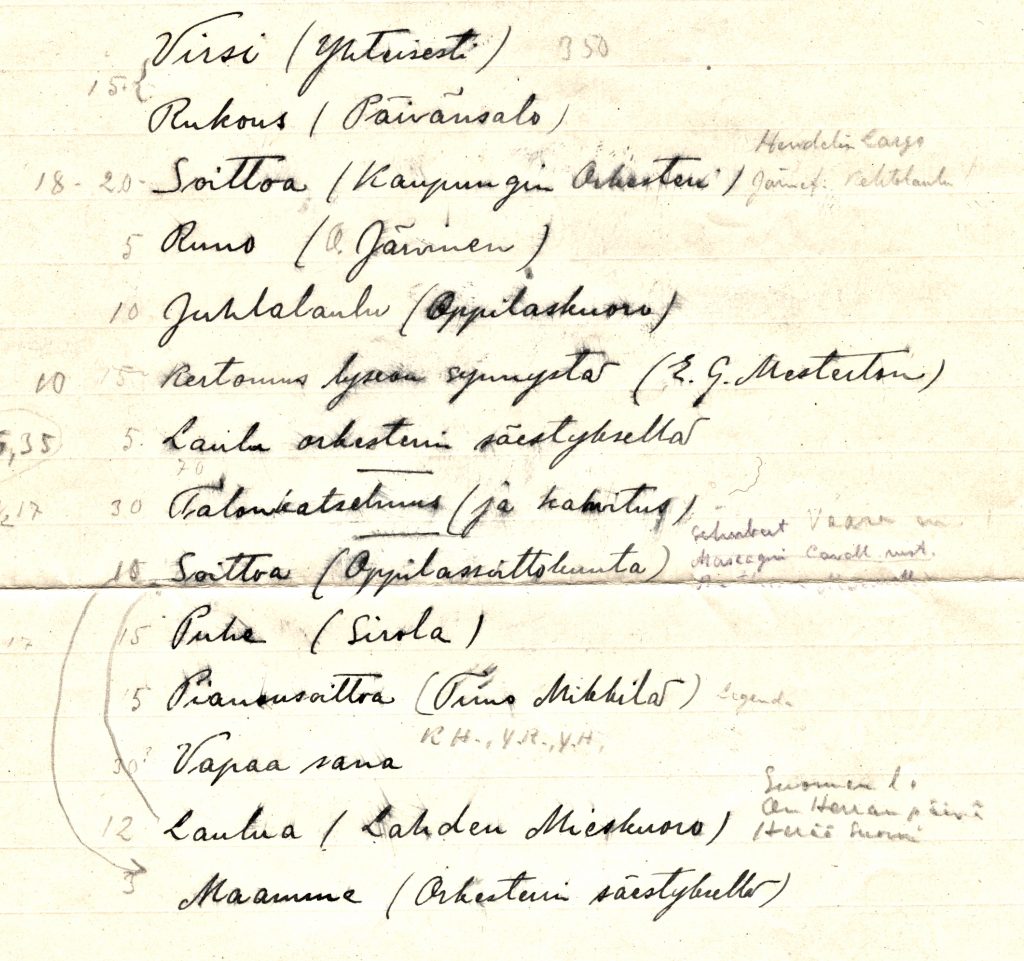 Virsi (Yhteisesti) 350
15.
Rukous (Päivänsalo)
Hendelin Largo
18 - 20 - Soittoa (Kaupungin Orkesteri) Järnef. Kehtolaulu
5 Runo (O. Järvinen)
10 Juhlalaulu (Oppilaskuoro)
10 15 - Kertomus lyseon synnystä (E. G. Mesterton)
5,35 5. Laulu orkesterin säestyksellä
70
17 30 Talonkatselmus (ja kahvitus)
Schubert
10 Soittoa (Oppilassoittokunta) Mascagni Cavall. rust.
17 15 Puhe (Sirola)
5 Pianonsoittoa (Timo Mikkilä) Legenda
K H., Y.K., Y.H,
30? Vapaa sana
Suomen l.
On Herran päivä
12 Laulua (Lahden Mieskuoro) Herää Suomi
3 Maamme (Orkesterin säestyksellä)